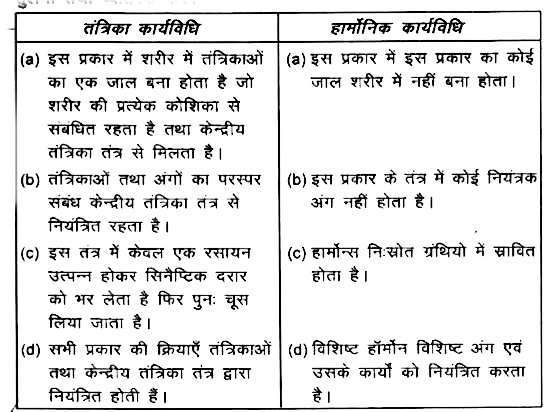 तंत्रिका कार्यविधि
हार्मोनिक कार्यविधि
(a) इस प्रकार में शरीर में तंत्रिकाओं
का एक जाल बना होता है जो
शरीर की प्रत्येक कोशिका से
संबंधित रहता है तथा केन्द्रीय
तंत्रिका तंत्र से मिलता है।
(a) इस प्रकार में इस प्रकार का कोई
जाल शरीर में नहीं बना होता।
(b) तंत्रिकाओं तथा अंगों का परस्पर
संबंध केन्द्रीय तंत्रिका तंत्र से
नियंत्रित रहता है।
(b) इस प्रकार के तंत्र में कोई नियंत्रक
अंग नहीं होता है।
(c) इस तंत्र में केवल एक रसायन
उत्पन्न होकर सिनैप्टिक दरार
को भर लेता है फिर पुनः चूस
लिया जाता है।
(c) हार्मोन्स निःस्रोत ग्रंथियो में स्रावित
होता है।
(d) सभी प्रकार की क्रियाएँ तंत्रिकाओं
तथा केन्द्रीय तंत्रिका तंत्र द्वारा
नियंत्रित होती हैं।
(d) विशिष्ट हॉर्मोन विशिष्ट अंग एवं
उसके कार्यों को नियंत्रित करता
है।